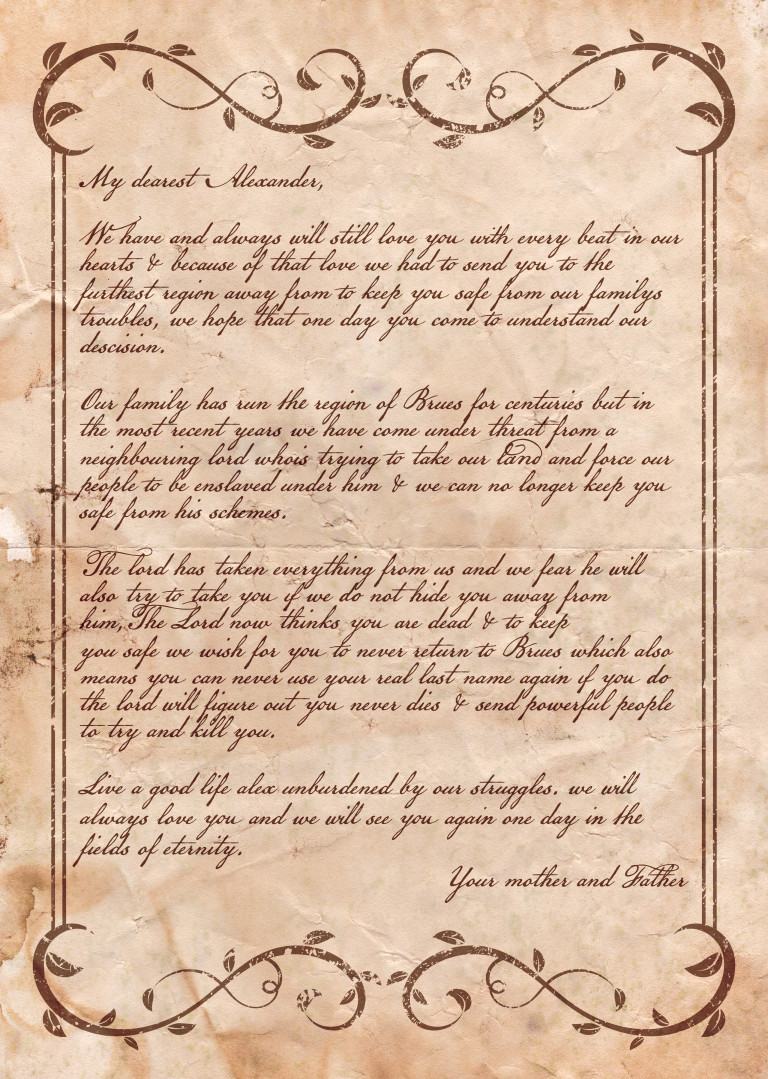 My dearest Alexander,
We have and always will still love you with every beat in our
hearts & because of that love we had to send you to the
furthest region away from to keep you safe from our familys
troubles, we hope that one day you come to understand our
descision.
Our family has run the region of Brues for centuries but in
the most recent years we have come under threat from a
neighbouring lord whois trying to take our land and force our
people to be enslaved under him & we can no longer keep you
safe from his schemes.
The lord has taken everything from us and we fear he will
also try to take you if we do not hide you away from
him, The Lord now thinks you are dead & to keep
you safe we wish for you to never return to Brues which also
means you can never use your real last name again if you do
the lord will figure out you never dies & send powerful people
to try and kill you.
Live a good life alex unburdened by our struggles. we will
always love you and we will see you again one day in the
fields of eternity.
Your mother and Father